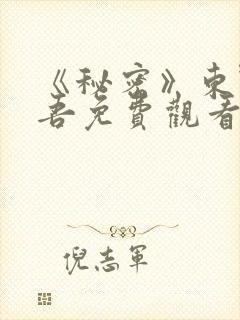 《秘密》東
吾免費觀看
倪志軍